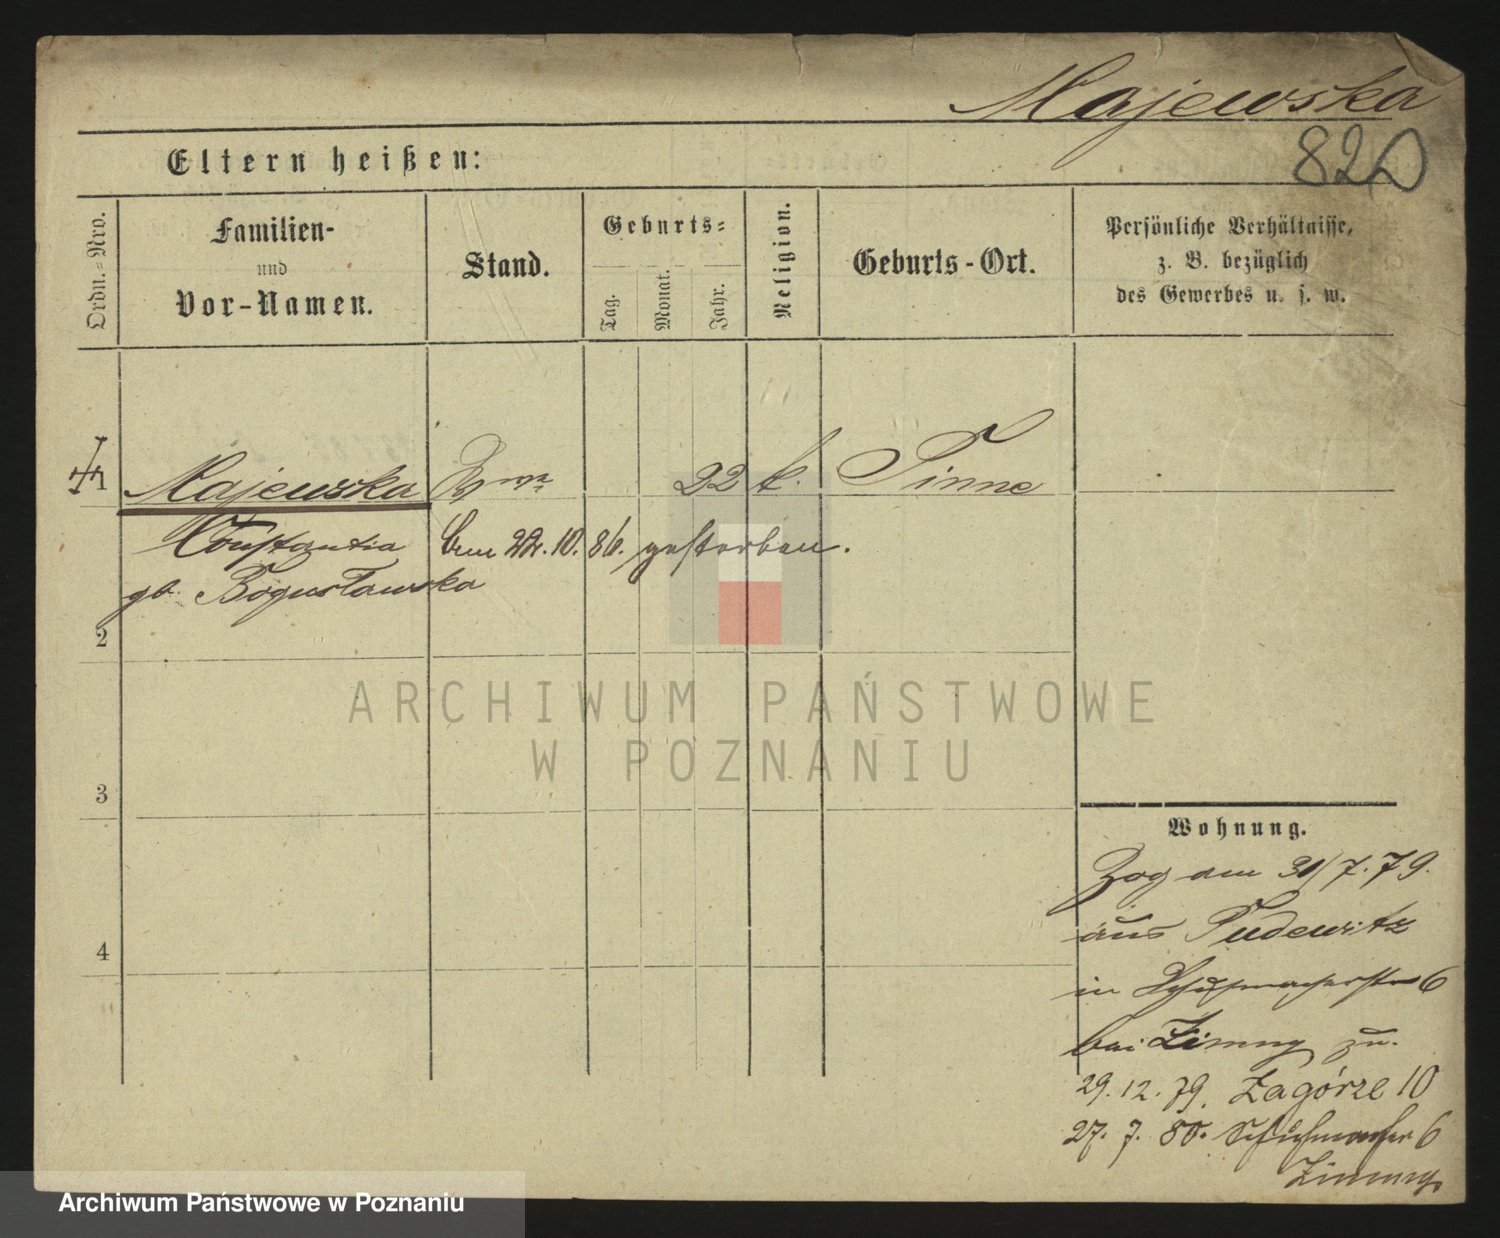 Majewska
820
Eltern heißen:
Ordn.=Nro.
Familien-
und
Vor-Namen.
Stand.
Geburts=
Tag.
Monat.
Jahr.
Religion.
Geburts-Ort.
Persönliche Verhältnisse,
z. B. bezüglich
des Gewerbes u. s. w.
Majewska 22 k. Pinne
Constantia 22. 10. 86. gestorben.
gb. Bogusławska
2
3
4
ARCHIWUM PAŃSTWOWE
W POZNANIU
Wohnung.
Zog am 31/7.79.
aus Pudewitz
in Schuhmacherstr 6
bei Zimny zu.
29. 12. 79. Zagórze 10
27. 7. 80. Schuhmacher 6
Zimny
Archiwum Państwowe w Poznaniu